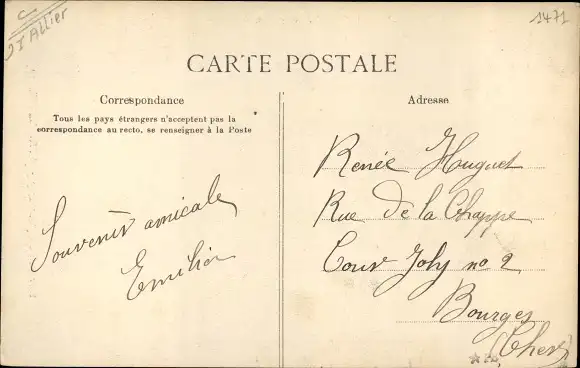 C
03 Allier
1471
CARTE POSTALE
Correspondance
Tous les pays étrangers n'acceptent pas la
correspondance au recto, se renseigner à la Poste
Souvenir amicale
Emilia
Adresse
Renée Huguet
Rue de la Chappe
Cour Joly no 2
Bourges
(Cher)